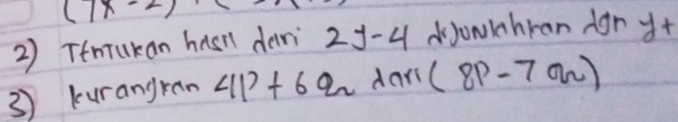 (7x - 2)
2) Tentukan hasil dari 2y-4 dijumlahkan dgn y+
3) kurangkan 4p + 6q dari (8p - 7q)